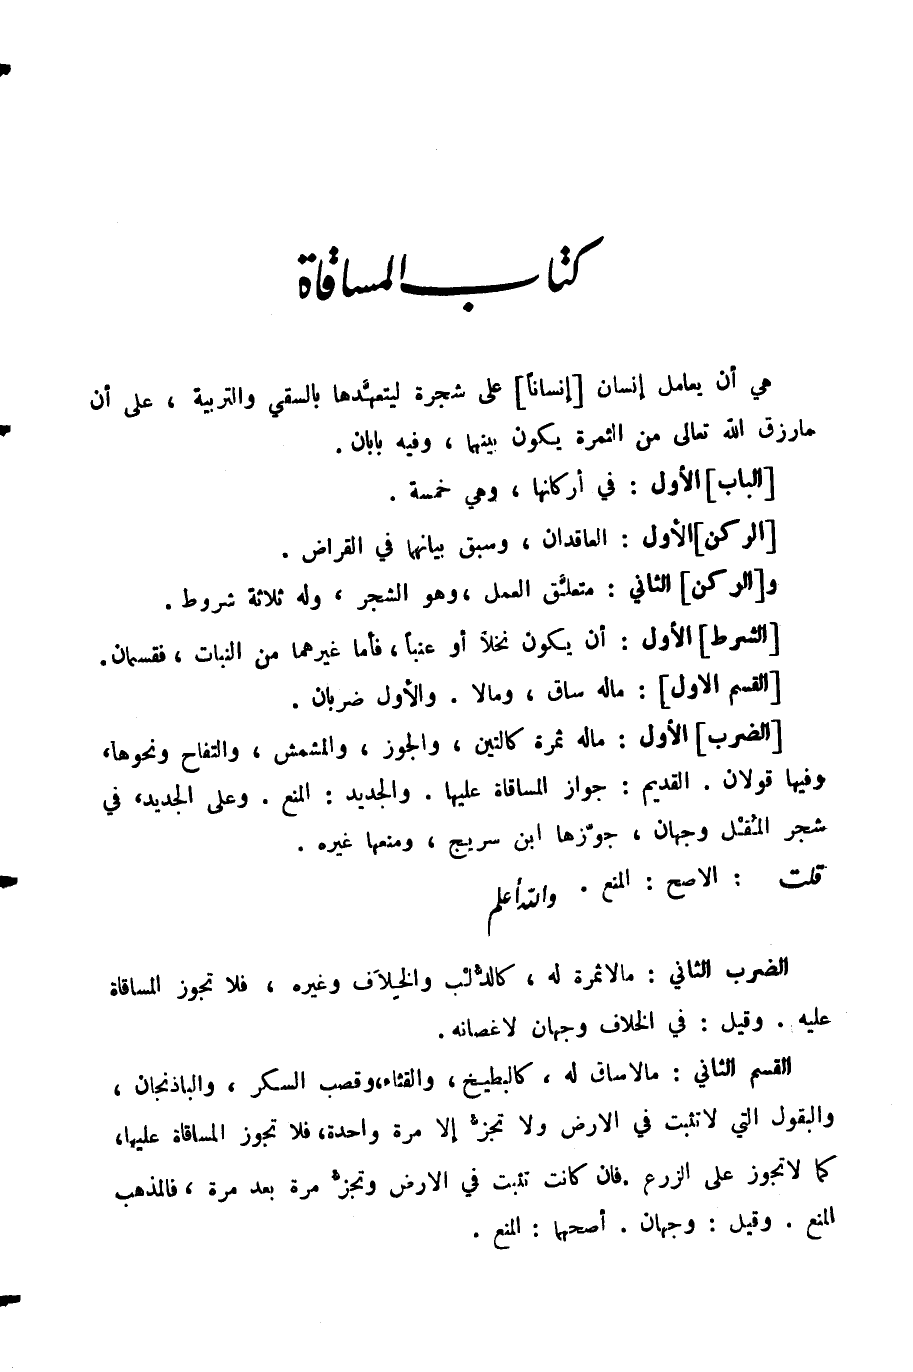 كتاب المساقاة
هي أن يعامل إنسان [إنساناً] على شجرة ليتعهَّدها بالسقي والتربية ، على أن
مارزق الله تعالى من الثمرة يكون بينهما ، وفيه بابان .
[الباب] الأول : في أركانها ، وهي خمسة .
[الركن] الأول : العاقدان ، وسبق بيانهما في القراض .
و[الركن] الثاني : متعلَّق العمل ، وهو الشجر ، وله ثلاثة شروط .
[الشرط] الأول : أن يكون نخلاً أو عنباً ، فأما غيرهما من النبات ، فقسمان .
[القسم الاول] : ماله ساق ، ومالا . والأول ضربان .
[الضرب] الأول : ماله ثمرة كالتين ، والجوز ، والمشمش ، والتفاح ونحوها ،
وفيها قولان . القديم : جواز المساقاة عليها . والجديد : المنع . وعلى الجديد ، في
شجر المُقْل وجهان ، جوّزها ابن سريج ، ومنعها غيره .
قلت : الاصح : المنع . والله أعلم
الضرب الثاني : مالاثمرة له ، كالدُلْب والخِلاَف وغيره ، فلا تجوز المساقاة
عليه . وقيل : في الخلاف وجهان لاغصانه .
القسم الثاني : مالاساق له ، كالبطيخ ، والقثاء ، وقصب السكر ، والباذنجان ،
والبقول التي لاتثبت في الارض ولا تجزُّ إلا مرة واحدة ، فلا تجوز المساقاة عليها ،
كما لاتجوز على الزرع . فان كانت تثبت في الارض وتجزُّ مرة بعد مرة ، فالمذهب
المنع . وقيل : وجهان . أصحهما : المنع .